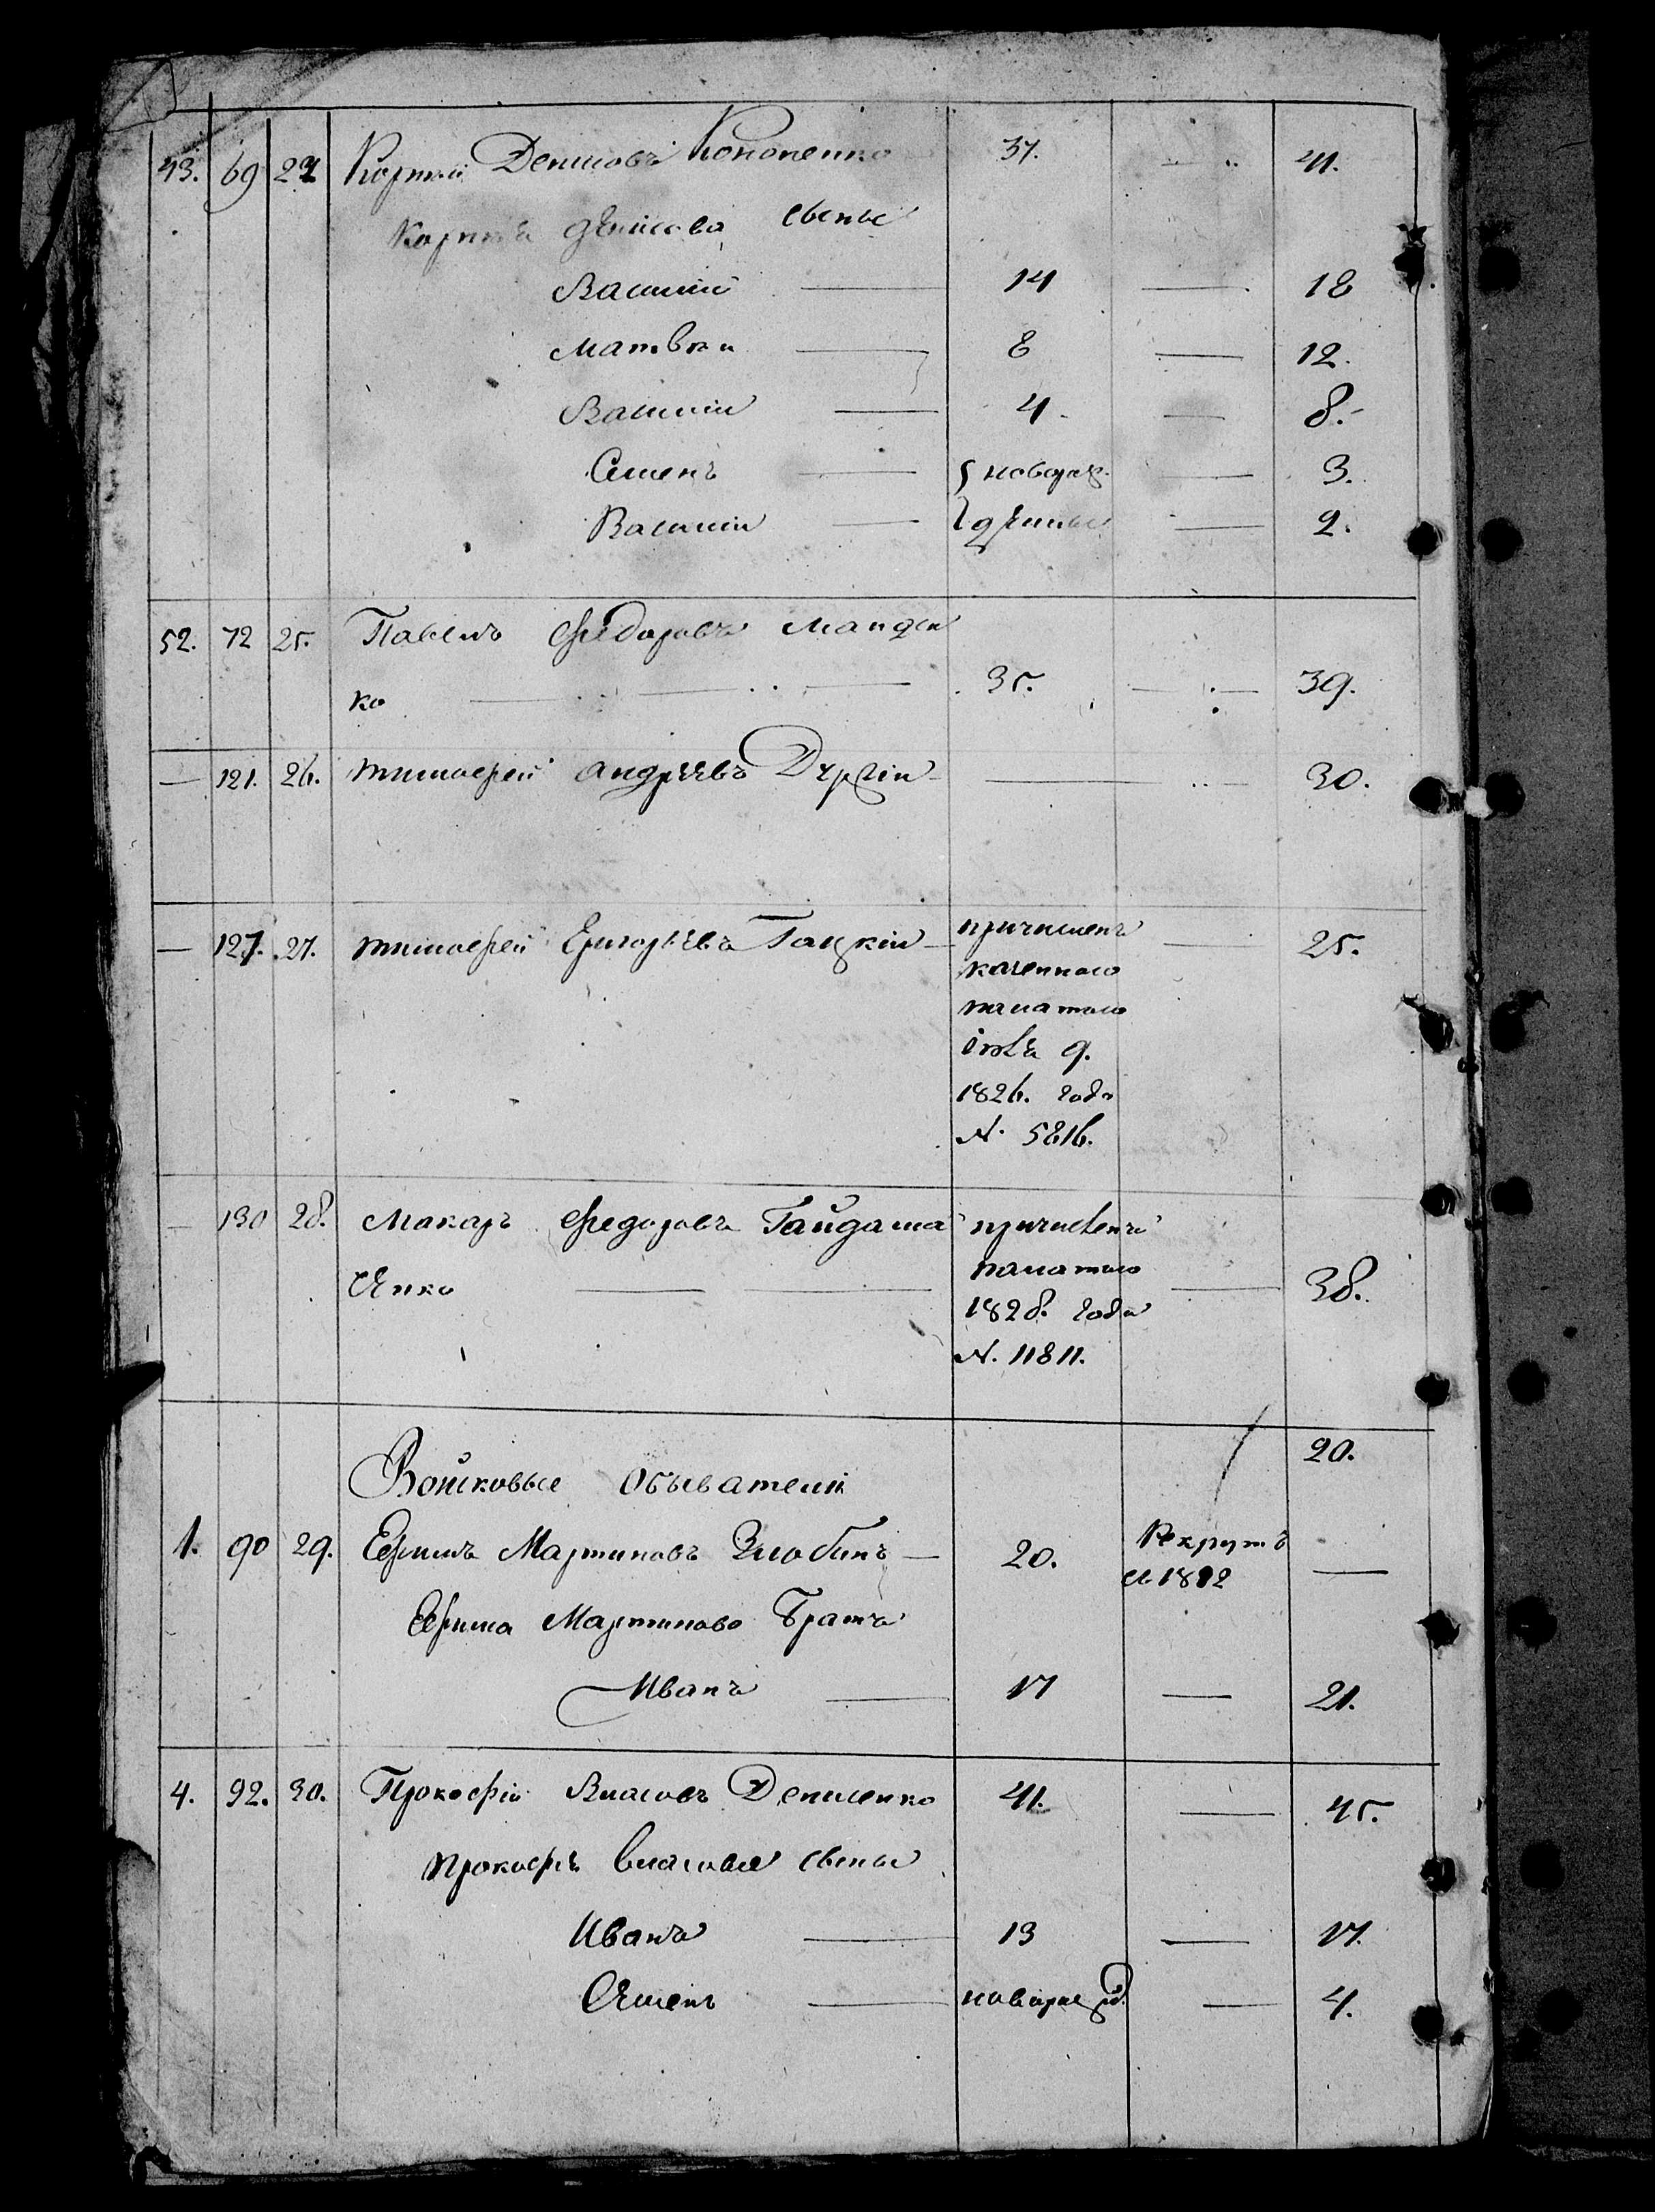 43. 69 24 Корнѣй Денисовъ Кононенко 37. — 41.
Корнѣя денисова сыны
Василій — 14 — 18
Матвѣй — 8 — 12.
Василій — 4 — 8.
Семенъ — новорож. — 3.
Василій — денные — 2.
52. 72 25. Павелъ Федоровъ Манден
ко — 35. — 39.
— 121. 26. тимофей андрѣевъ — 30.
— 127. 27. тимофей Григорьевъ Гацкій — причисленъ — 25.
казенною
палатою
9.
1826. года
N. 5816.
— 130 28. Макаръ Федоровъ Гайдама причисленъ
Сѣнко — палатою — 38.
1828. года
N. 11811.
20.
Войсковые обыватели
1. 90 29. Ефимъ Мартиновъ Злобинъ — 20. Рекрутъ —
в 1832
Ефима Мартинова Братъ
Иванъ — 17 — 21.
4. 92. 30. Прокофій Власовъ Денисенко 41. — 45.
прокофія власова сыны
Иванъ — 13 — 17.
Семенъ — новорожд. — 4.